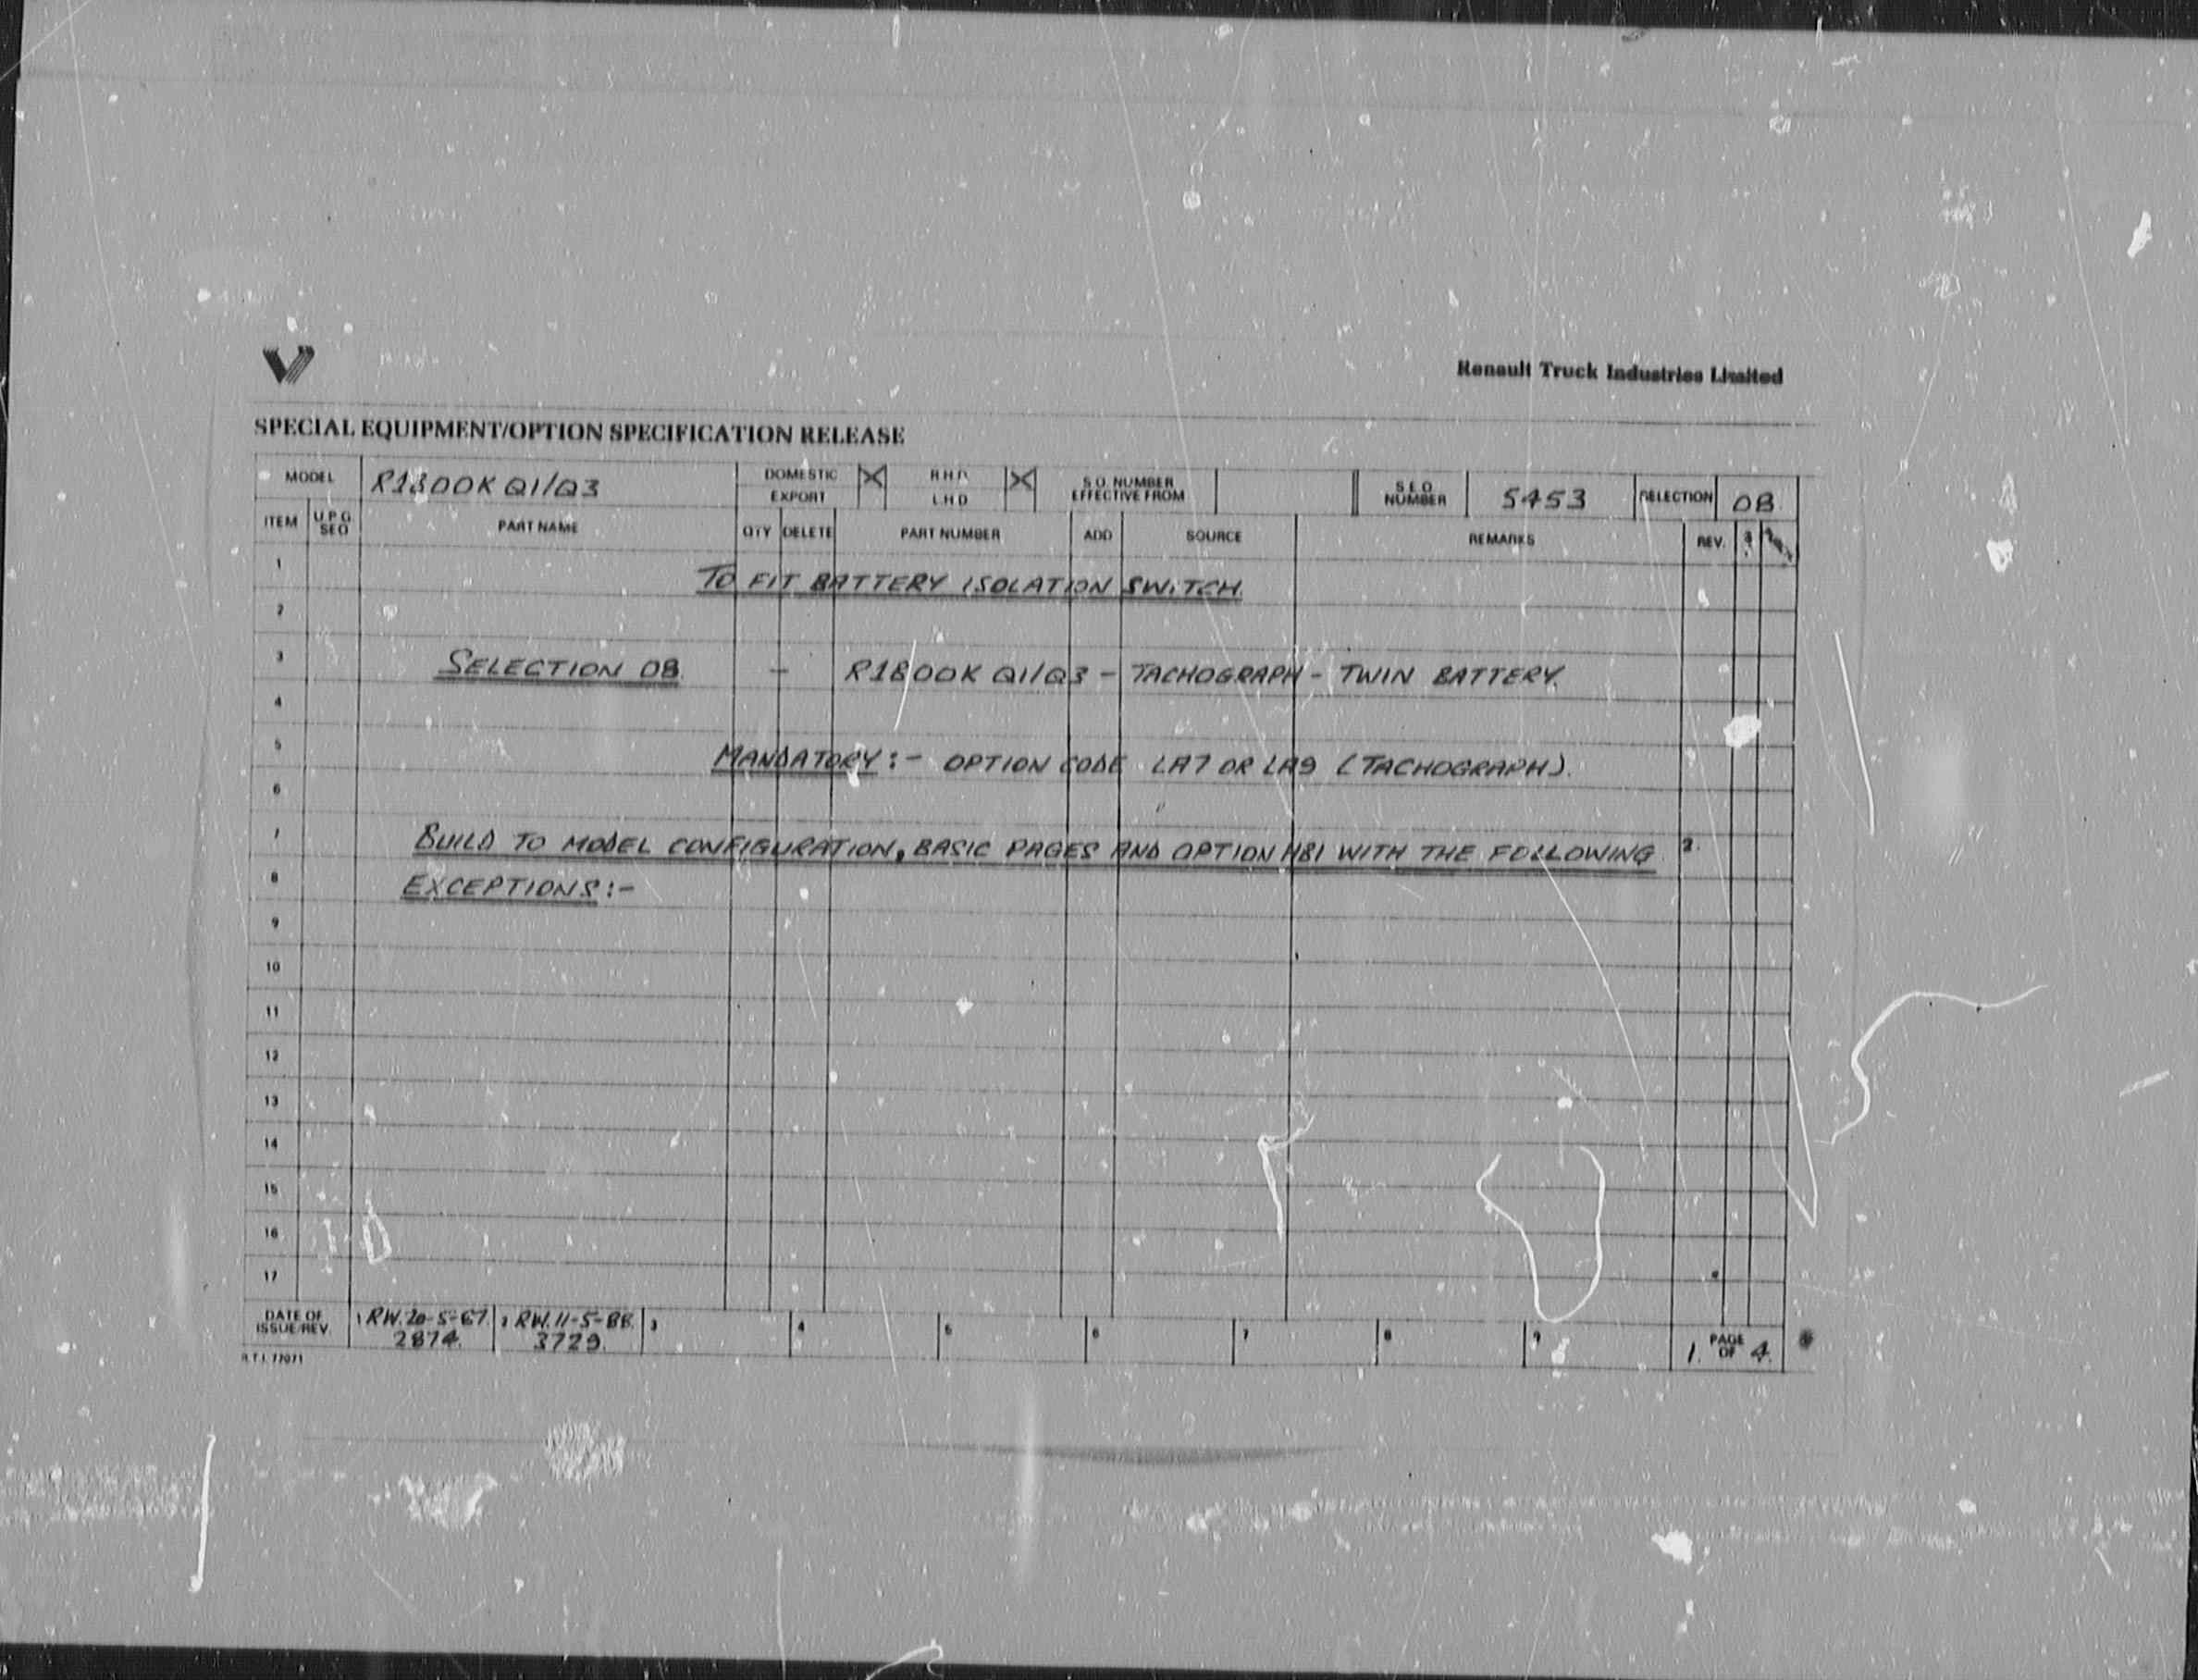 Renault Truck Industries Limited
SPECIAL EQUIPMENT/OPTION SPECIFICATION RELEASE
MODEL R1800K Q1/Q3 DOMESTIC X R H D X S.O. NUMBER EFFECTIVE FROM S E O NUMBER 5453 SELECTION 08
EXPORT L H D
ITEM U P G SEQ PART NAME QTY DELETE PART NUMBER ADD SOURCE REMARKS REV.
1 TO FIT BATTERY ISOLATION SWITCH
2
3 SELECTION 08 - R1800K Q1/Q3 - TACHOGRAPH - TWIN BATTERY.
4
5 MANDATORY:- OPTION CODE LA7 OR LA9 (TACHOGRAPH).
6
7 BUILD TO MODEL CONFIGURATION, BASIC PAGES AND OPTION H81 WITH THE FOLLOWING 2.
8 EXCEPTIONS:-
9
10
11
12
13
14
15
16
17
DATE OF ISSUE/REV. 1 RW. 20-5-87 2 RW. 11-5-88. 3 4 5 6 7 8 9 1. PAGE OF 4.
2874. 3729.
R.T.I. 77071